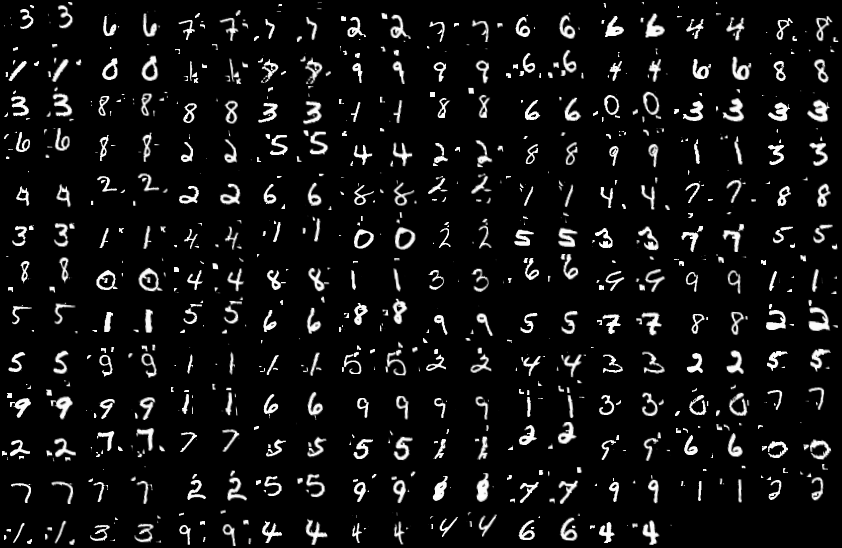 3 3 6 6 7 7 7 7 2 2 7 7 6 6 6 6 4 4 8 8
1 1 0 0 1 1 8 8 9 9 9 9 6 6 4 4 6 6 8 8
3 3 8 8 8 8 3 3 1 1 8 8 6 6 0 0 3 3 3 3
6 6 8 8 2 2 5 5 4 4 2 2 8 8 9 9 1 1 3 3
4 4 2 2 2 2 6 6 8 8 2 2 1 1 4 4 7 7 8 8
3 3 1 1 4 4 1 1 0 0 2 2 5 5 3 3 7 7 5 5
8 8 0 0 4 4 8 8 1 1 3 3 6 6 9 9 9 9 1 1
5 5 1 1 5 5 6 6 8 8 9 9 5 5 7 7 8 8 2 2
5 5 9 9 1 1 1 1 5 5 2 2 4 4 3 3 2 2 5 5
9 9 9 9 1 1 6 6 9 9 9 9 1 1 3 3 0 0 7 7
2 2 7 7 7 7 5 5 5 5 1 1 2 2 9 9 6 6 0 0
7 7 7 7 2 2 5 5 9 9 8 8 7 7 9 9 1 1 2 2
1 1 3 3 9 9 4 4 4 4 4 4 6 6 4 4